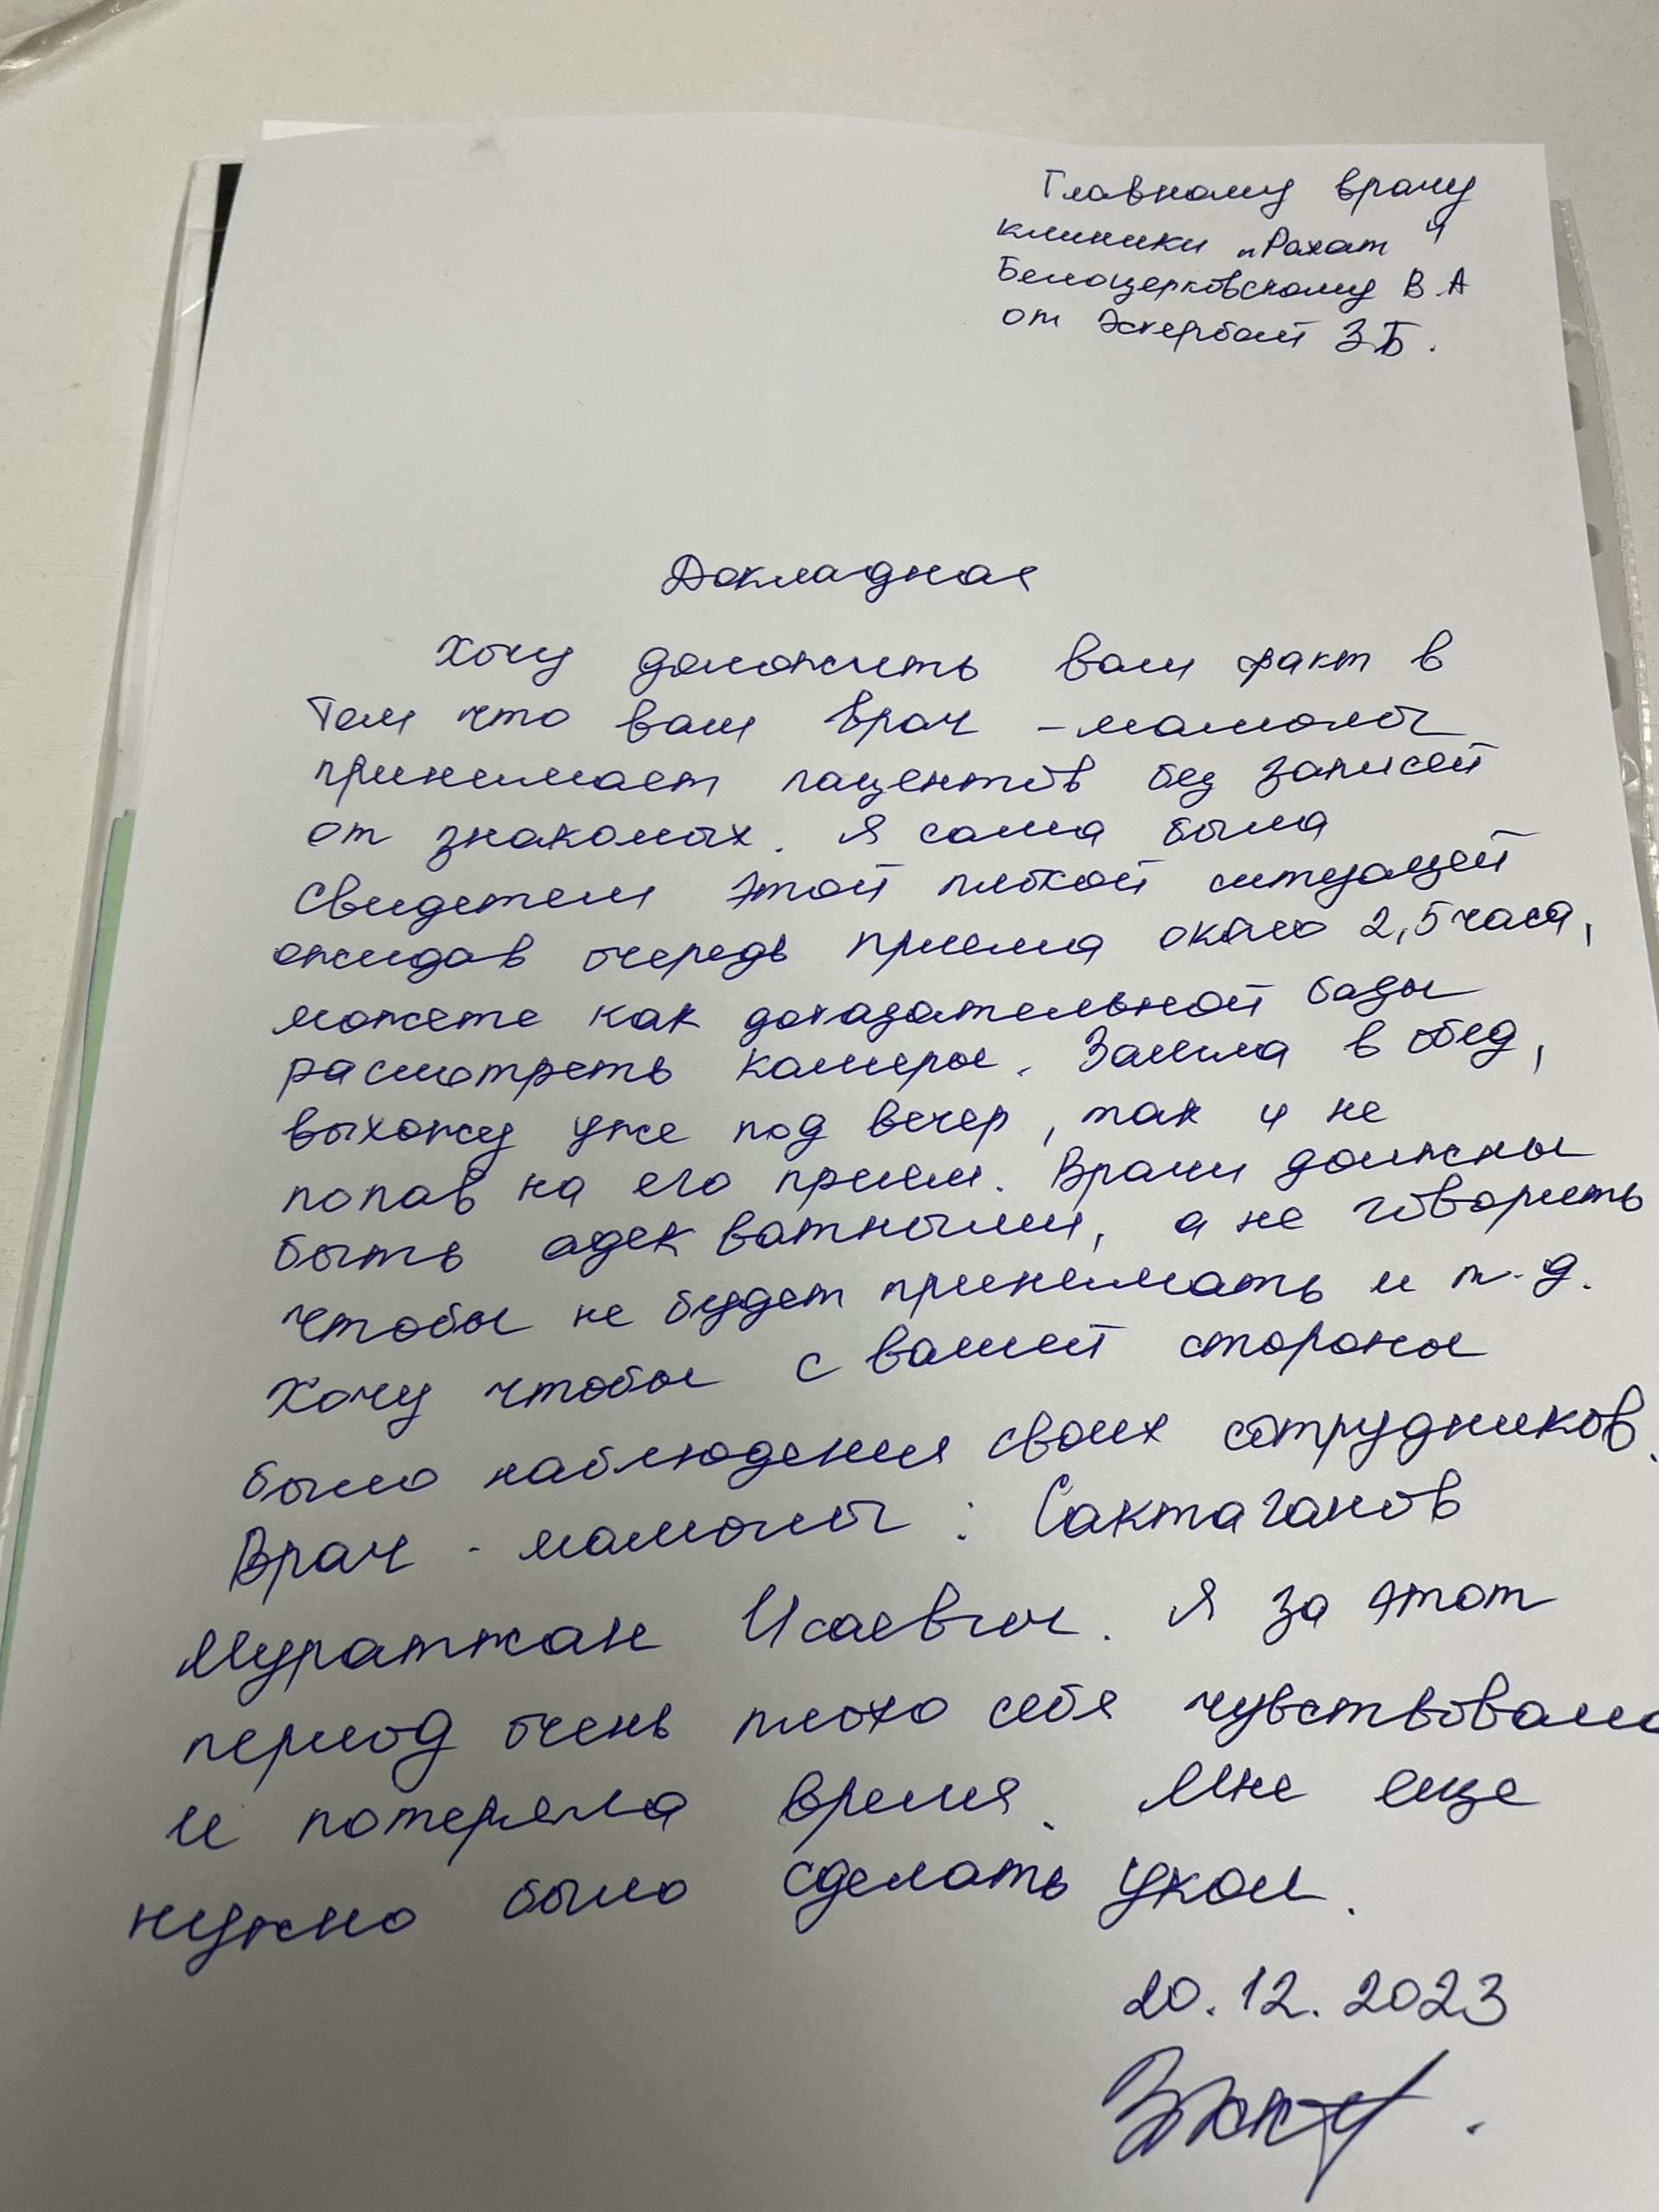 Главному врачу
клиники „Рахат"
Белоцерковскому В.А
от Эскербай З.Б.
Докладная
Хочу доложить вам факт в
том что ваш врач - маммолог
принимает пацентов без записей
от знакомых. Я сама была
свидетелем этой плохой ситуацией
ожидав очередь приема около 2,5 часа,
можете как доказательной базы
расмотреть камеры. Зашла в обед,
выхожу уже под вечер, так и не
попав на его прием. Врачи должны
быть адекватными, а не говорить
чтобы не будет принимать и т.д.
Хочу чтобы с вашей стороны
было наблюдения своих сотрудников.
Врач - маммолог : Сактаганов
Муратжан Исаевич. Я за этот
период очень плохо себя чувствовала
и потеряла время. Мне еще
нужно было сделать укол.
20.12.2023